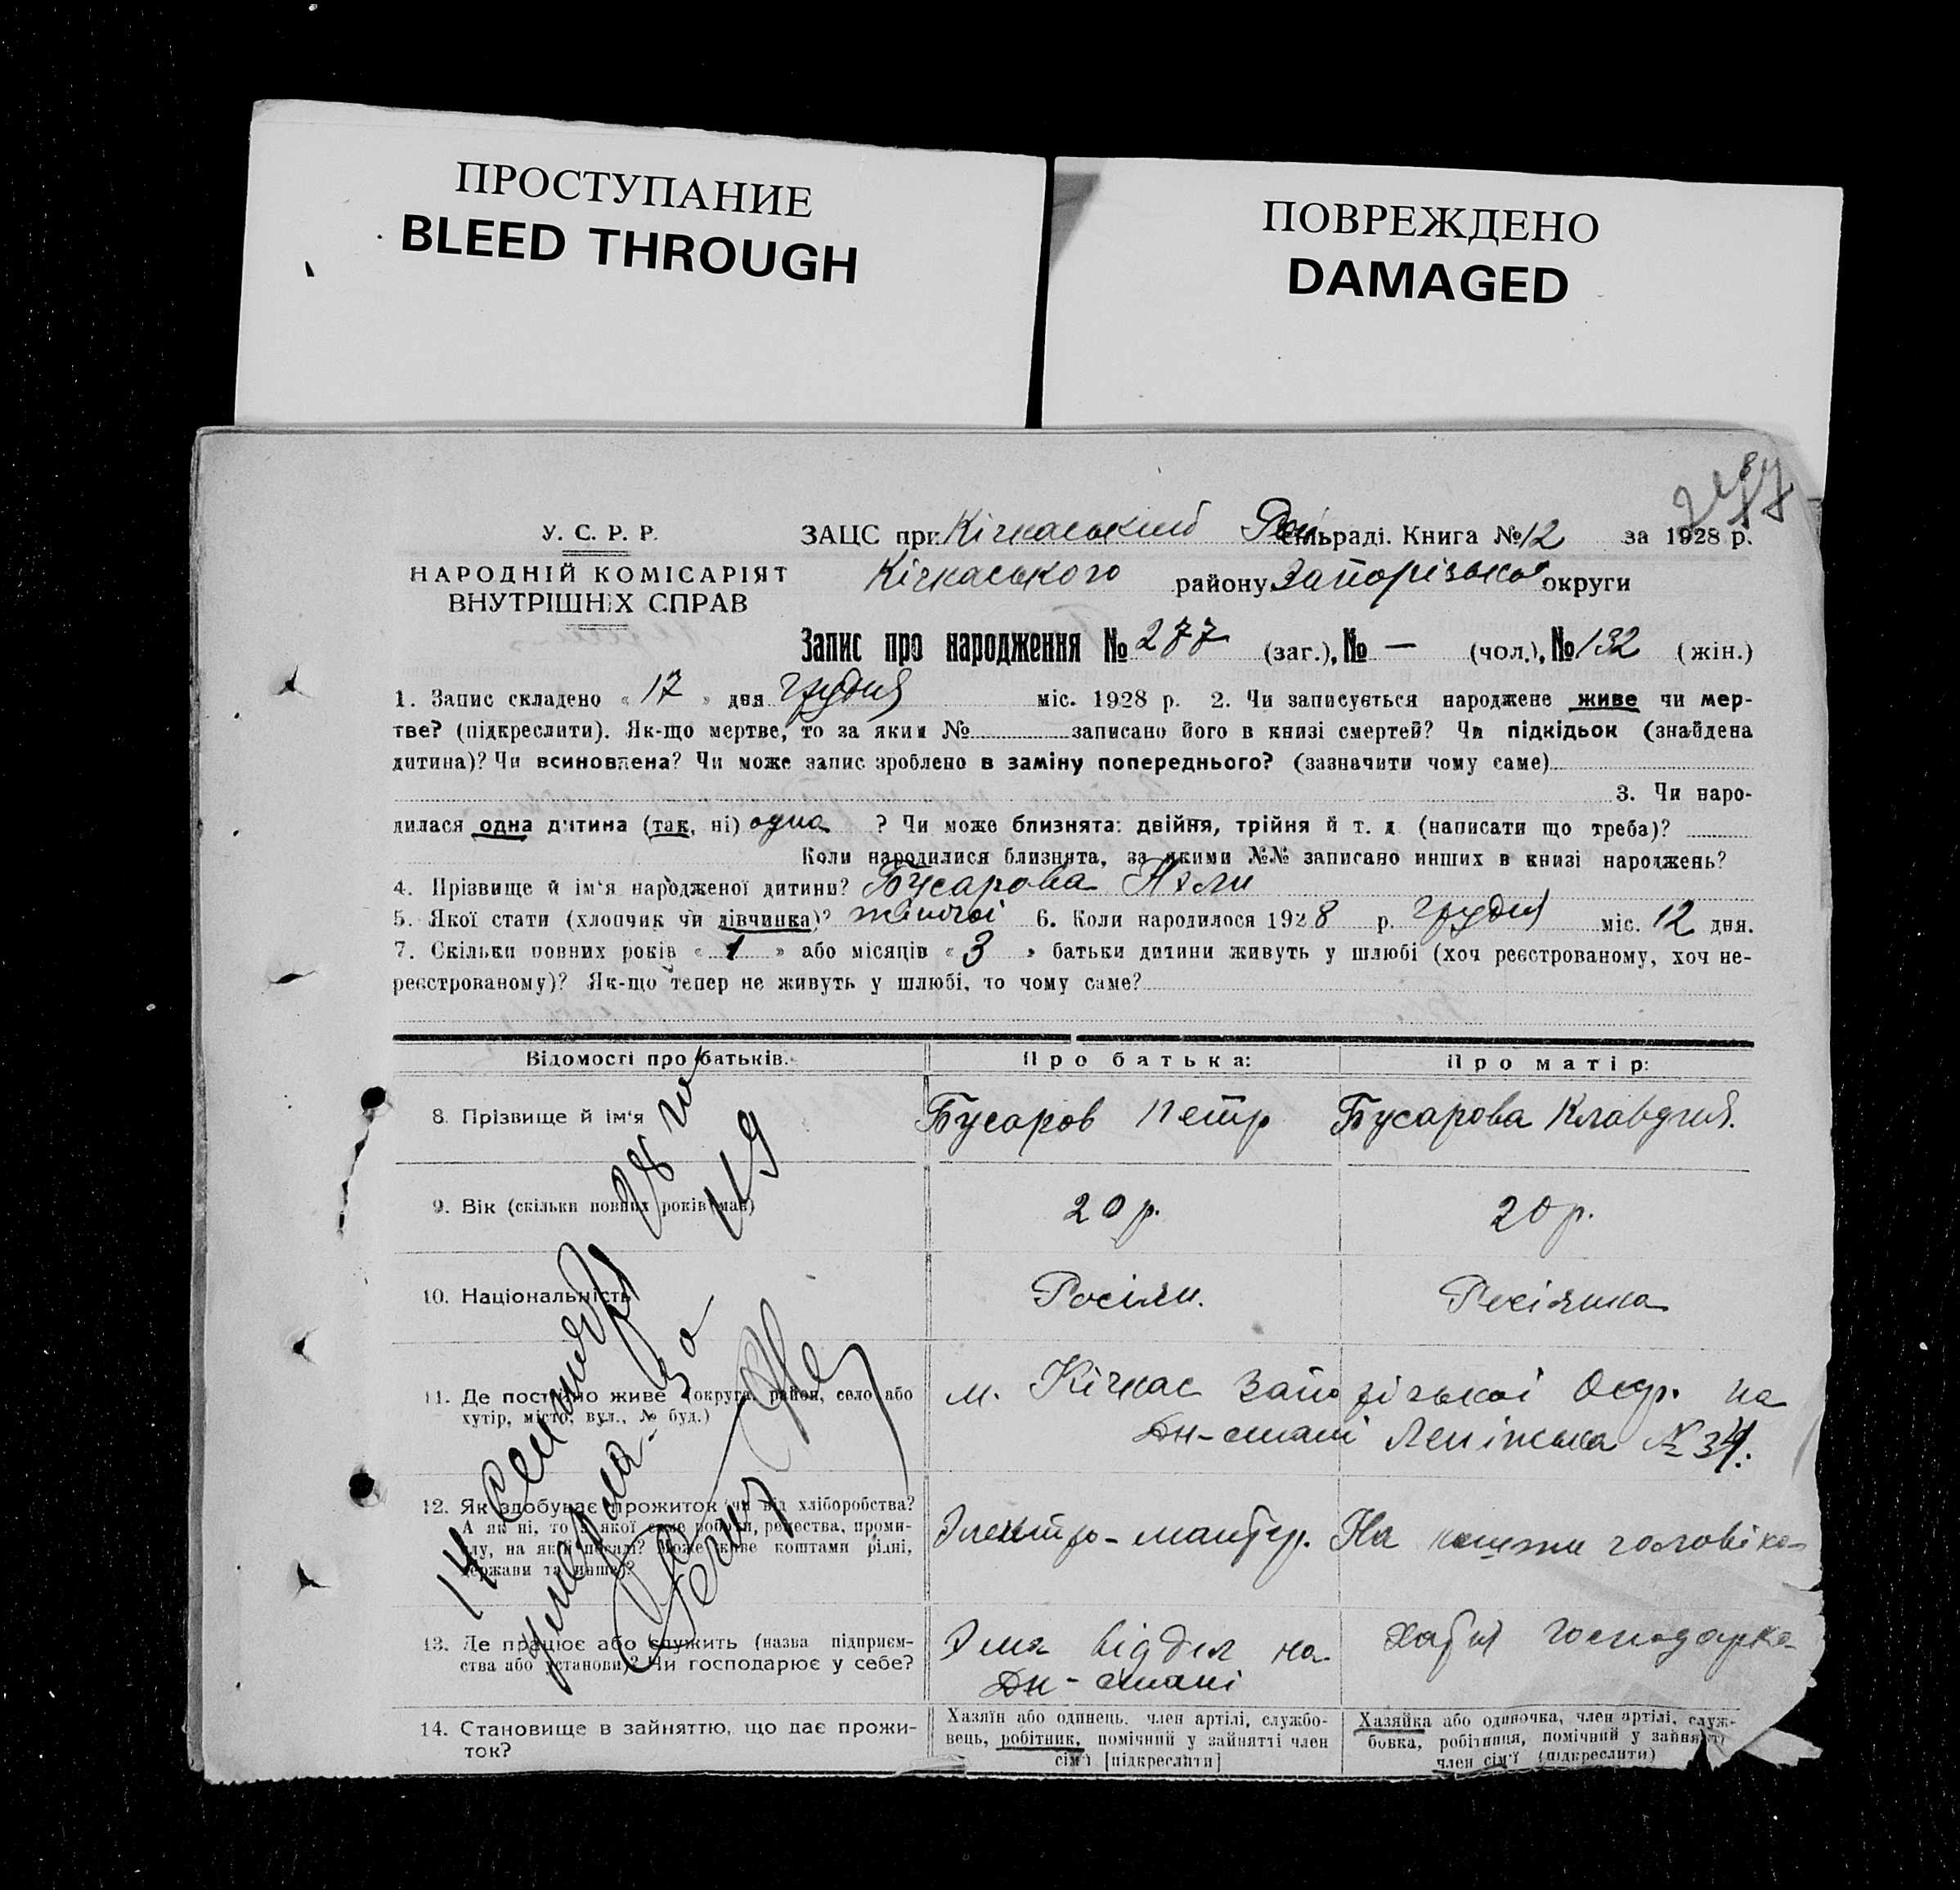 ПРОСТУПАНИЕ
BLEED THROUGH
ПОВРЕЖДЕНО
DAMAGED
У. С. Р. Р.
НАРОДНІЙ КОМІСАРІЯТ
ВНУТРІШНІХ СПРАВ
ЗАЦС при Кічкаський сільраді. Книга № 12 за 1928 р.
Кічкаського району Запорізької округи
Запис про народження № 277 (заг.), № — (чол.), № 132 (жін.)
1. Запис складено « 17 » дня грудня міс. 1928 р. 2. Чи записується народжене живе чи мер-
тве? (підкреслити). Як-що мертве, то за яким № записано його в книзі смертей? Чи підкідьок (знайдена
дитина)? Чи всиновлена? Чи може запис зроблено в заміну попереднього? (зазначити чому саме)
3. Чи наро-
дилася одна дитина (так, ні) одна ? Чи може близнята: двійня, трійня й т. д. (написати що треба)?
Коли народилися близнята, за якими №№ записано инших в книзі народжень?
4. Прізвище й ім'я народженої дитини? Бусарова Нэли
5. Якої стати (хлопчик чи дівчинка)? жіночої 6. Коли народилося 1928 р. грудня міс. 12 дня.
7. Скільки повних років « 1 » або місяців « 3 » батьки дитини живуть у шлюбі (хоч реєстрованому, хоч не-
реєстрованому)? Як-що тепер не живуть у шлюбі, то чому саме?
Відомості про батьків. Про батька: Про матір:
8. Прізвище й ім'я Бусаров Петр Бусарова Клавдия.
9. Вік (скільки повних років має) 20 р. 20 р.
10. Національність Росіян. Росіянка
11. Де постійно живе (округа, район, село або м. Кічкас Запорізької Окр. на
хутір, місто, вул., № буд.) Дн-стані Ленінська № 34.
12. Як здобуває прожиток чи від хліборобства? Электро-монтер. На кошти чоловіка
А як ні, то з якої саме роботи, ремества, проми-
слу, на якій посаді? Може живе коштами рідні,
держави та инше?
13. Де працює або служить (назва підприєм- Элек відділ на Хатня господарка
ства або установи)? Чи господарює у себе? Дн-стані
14. Становище в зайняттю, що дає прожи-
ток?
Хазяїн або одинець, член артілі, службо-
вець, робітник, помічний у зайнятті член
сім'ї [підкреслити]
Хазяйка або одиночка, член артілі, служ-
бовка, робітниця, помічний у зайнятті
член сім'ї (підкреслити)